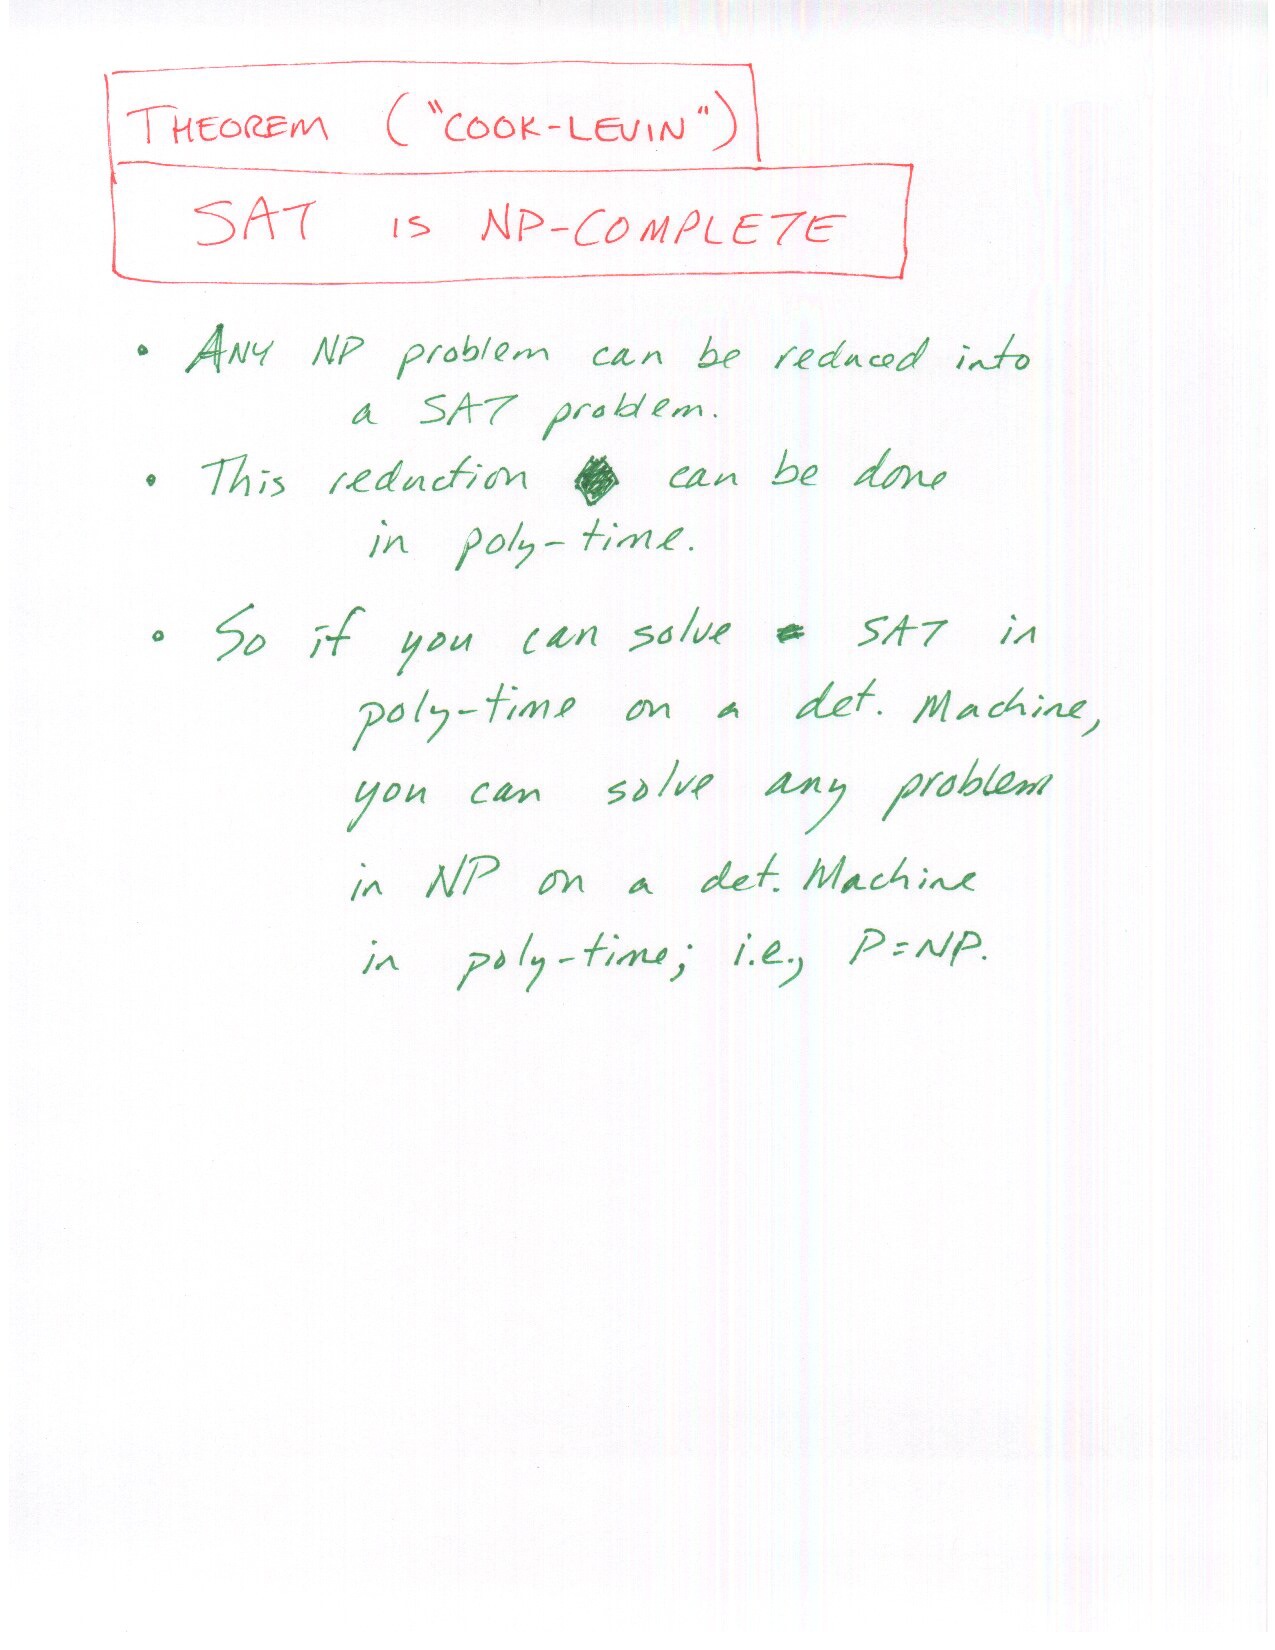 THEOREM ("COOK-LEVIN")
SAT IS NP-COMPLETE
• ANY NP problem can be reduced into
a SAT problem.
• This reduction can be done
in poly-time.
• So if you can solve SAT in
poly-time on a det. Machine,
you can solve any problem
in NP on a det. Machine
in poly-time; i.e., P=NP.